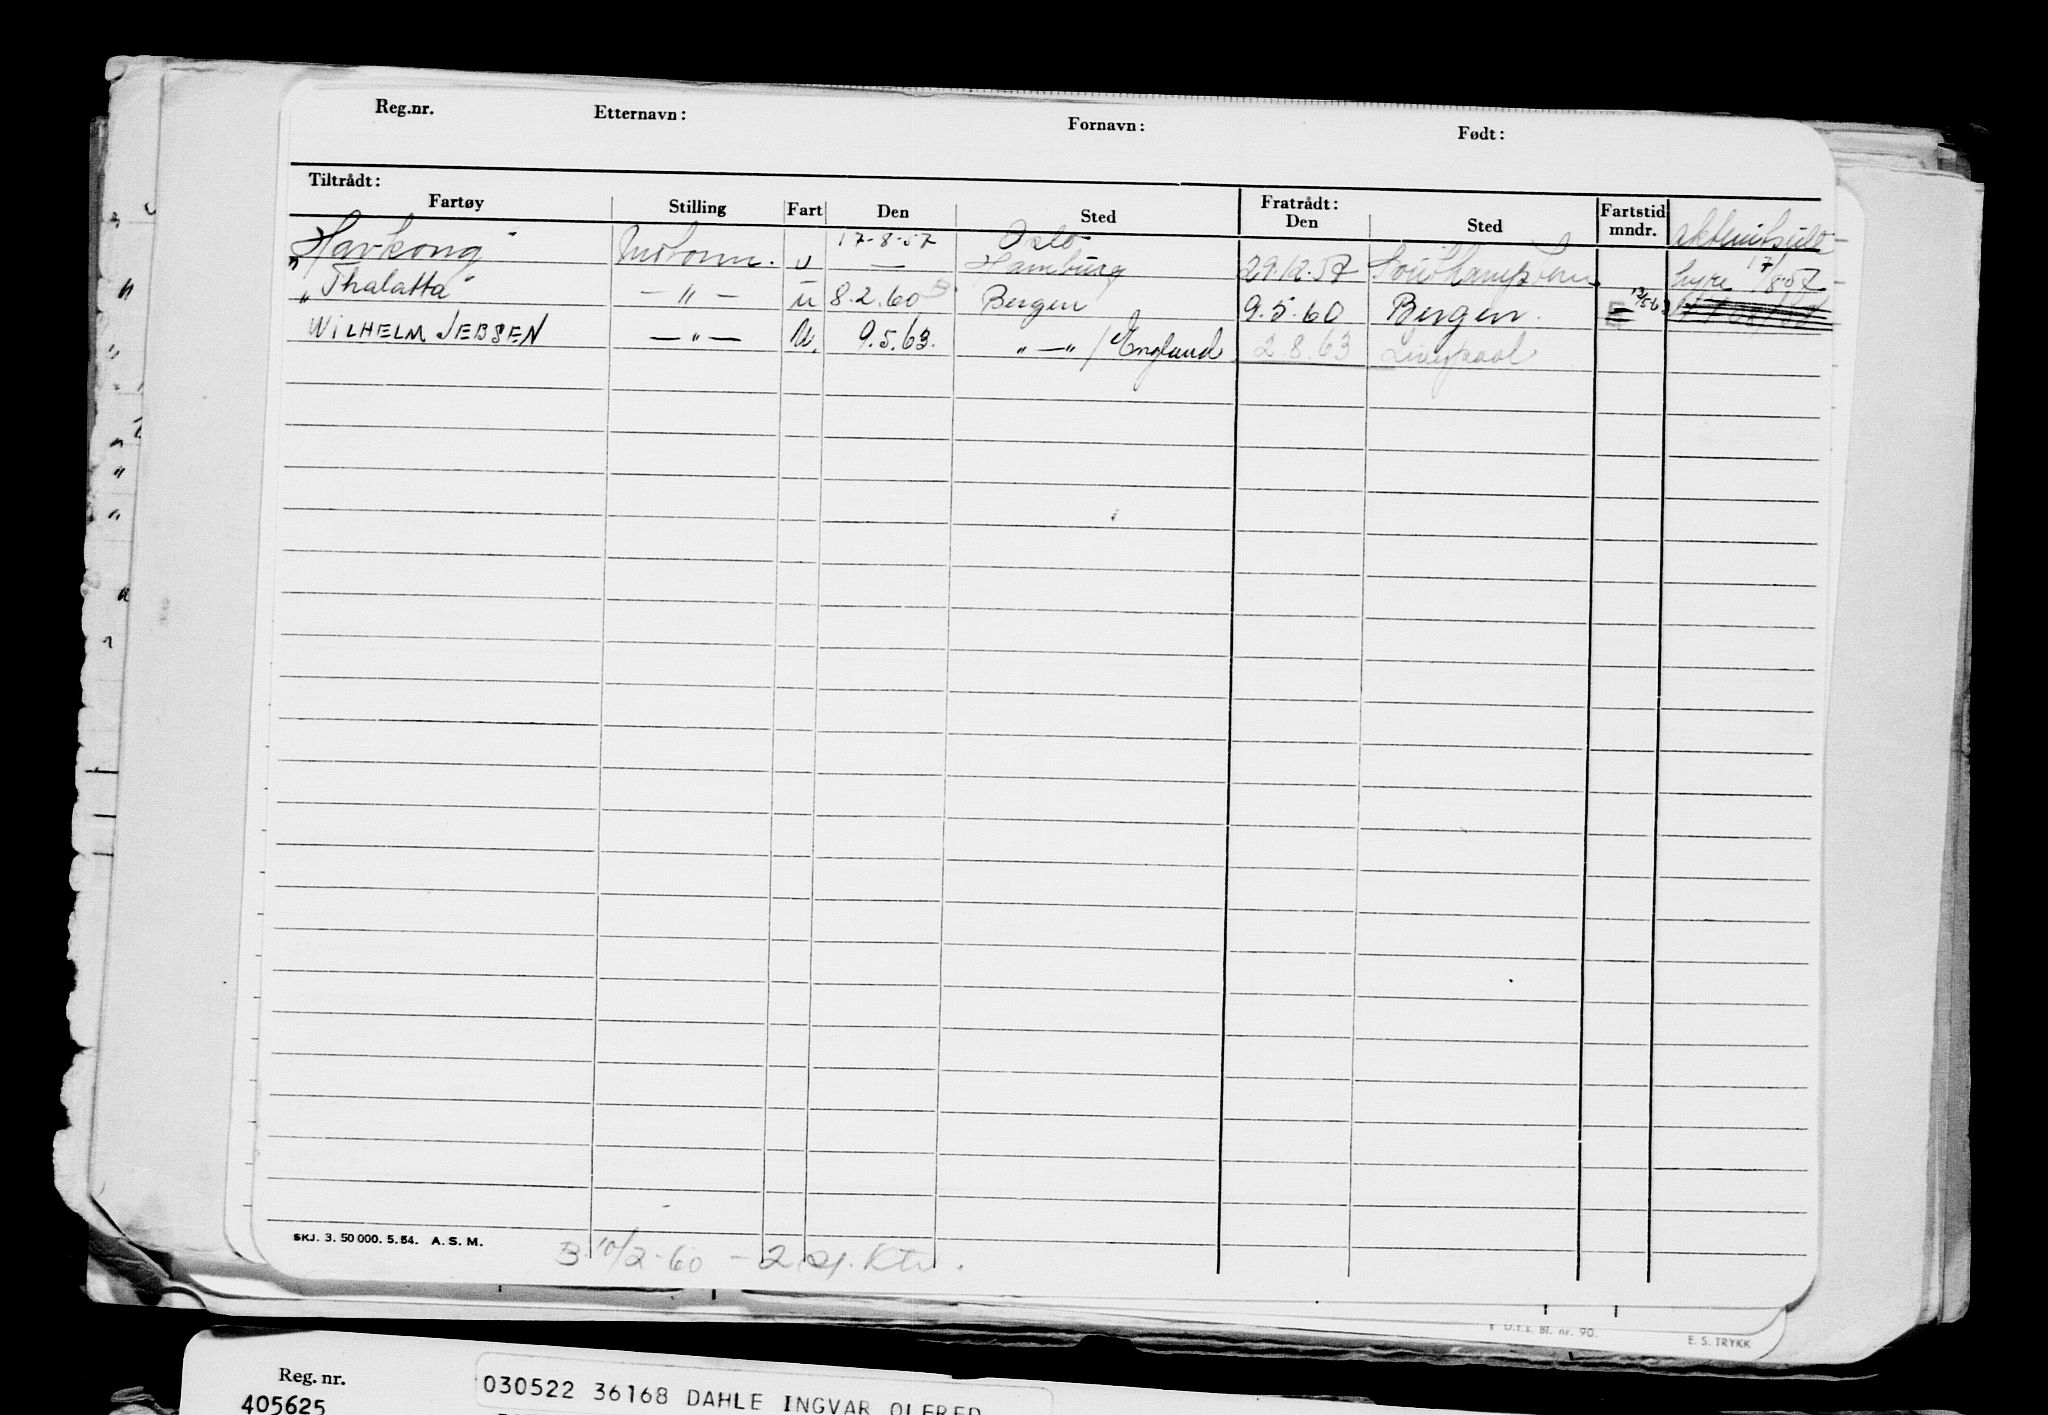 Reg.nr. Etternavn: Fornavn: Født:
Tiltrådt: Fratrådt:
Fartøy Stilling Fart Den Sted Den Sted Fartstid mndr.
17-8-57 Oslo
"Havkong" Motorm. u — Hamburg 29.12.57 Southampton hyre 17/8-57
"Thalatta" — " — u 8.2.60 B Bergen 9.5.60 Bergen. E
WILHELM JEBSEN — " — U. 9.5.63. " — " / England 2 8.63 Liverpool
SKJ. 3. 50 000. 5.54. A. S. M.
B. 10/2-60 – 2
Bl. nr. 90.
E. S. TRYKK
Reg. nr.
405625
030522 36168 DAHLE INGVAR OLFRED